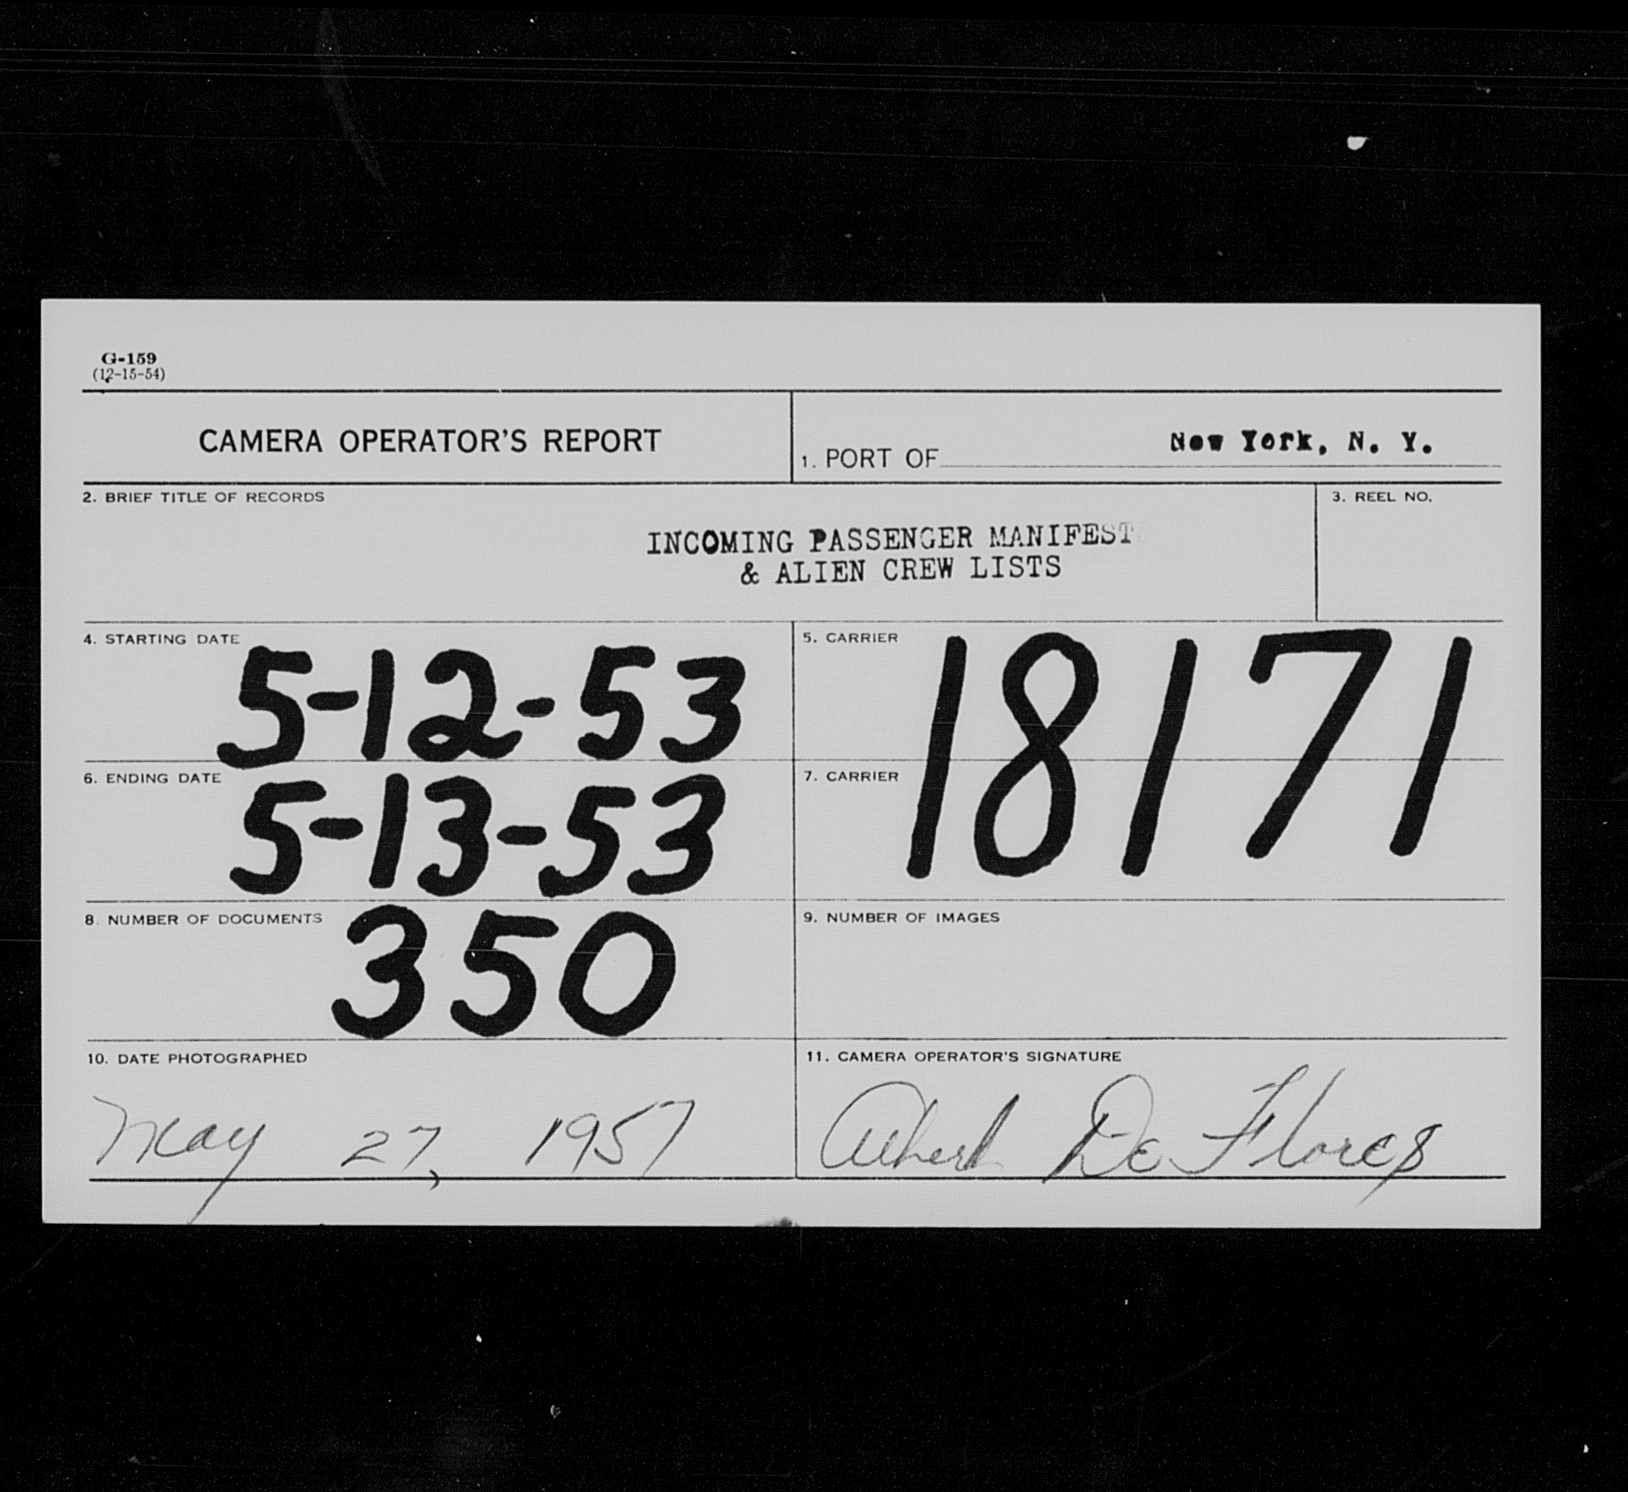 G-159
(12-15-54)
CAMERA OPERATOR'S REPORT
1. PORT OF New York, N. Y.
2. BRIEF TITLE OF RECORDS
INCOMING PASSENGER MANIFEST
& ALIEN CREW LISTS
3. REEL NO.
4. STARTING DATE
5-12-53
5. CARRIER
18171
6. ENDING DATE
5-13-53
7. CARRIER
8. NUMBER OF DOCUMENTS
350
9. NUMBER OF IMAGES
10. DATE PHOTOGRAPHED
May 27, 1957
11. CAMERA OPERATOR'S SIGNATURE
Albert De Flores